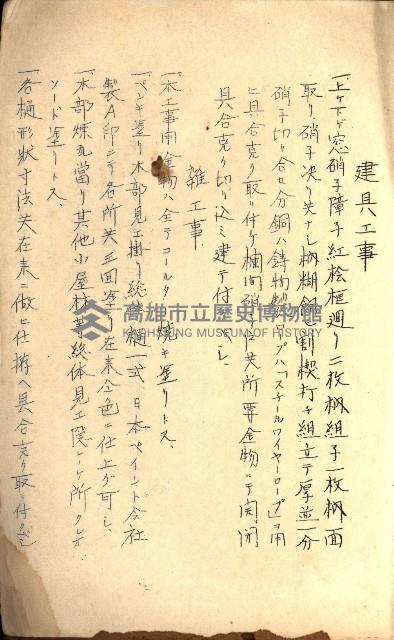 建具工事
一、上ゲ下ゲ窓硝子障子紅桧框廻リ二枚枘組子一枚枘面
取リ硝子決リ
硝子切リ合セ分銅ハ鋳物製ロープハ「スチールワイヤーロープ」ヲ用
ヒ具合克ク取リ付ケ欄間硝子共所要金物ニテ開閉
具合克ク切リ込ミ建テ付ベシ、
雑工事
一、本工事用金物ハ全テコールタール焼キ塗リトス、
一、ペンキ塗リ木部見エ掛リ総テ樋一式日本ペイント会社
製A印ニテ各所共三回塗リ在来仝色ニ仕上グ可シ、
一、木部煉瓦當リ其他小屋材等総体見エ隠レケ所クレオ
ソード塗リトス、
一、各樋形状寸法共在来ニ做ヒ仕拵ヘ具合克ク取リ付クベシ
高雄市立歷史博物館
KAOHSIUNG MUSEUM OF HISTORY